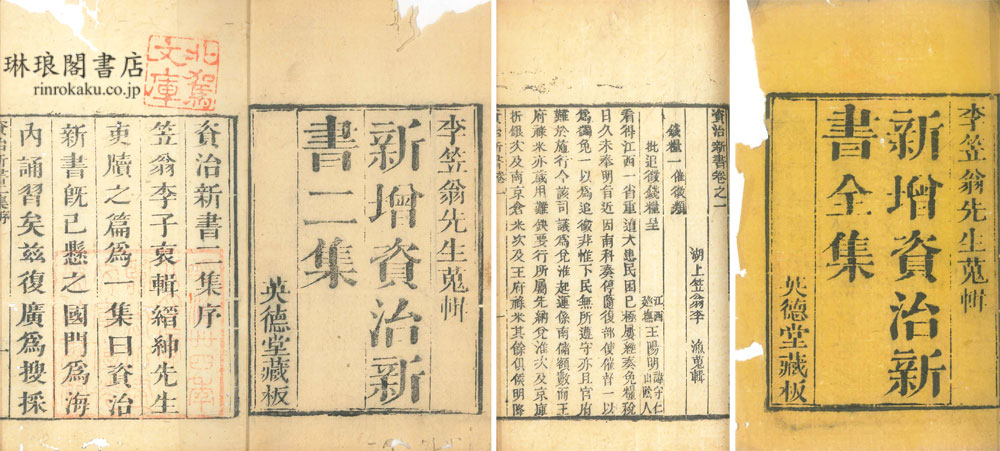 琳琅閣書店
rinrokaku.co.jp
北駕
文庫
資治新書二集序
笠翁李子裒輯縉紳先生
吏牘之篇爲一集曰資治
新書旣已懸之國門爲海
內誦習矣茲復廣爲搜採
李笠翁先生蒐輯
新增資治新
書二集
英德堂藏板
資治新書卷之一
湖上笠翁李 漁蒐輯
錢糧一 催徵類
批追徵錢糧呈 王陽明 諱守仁
看得江西一省重遭大患民困已極屢經奏免糧稅
日久未奉明旨近因南科奏停隨復部使催督一以
爲蠲免一以爲追徵非惟下民無所遵守亦且官府
難於施行今該司議爲兌淮起運係南儲額數而王
府祿米亦歲用難缺要行所屬先納兌淮次及京庫
折銀次及南京倉米次及王府祿米其餘俱候明降
李笠翁先生蒐輯
新增資治新
書全集
英德堂藏板